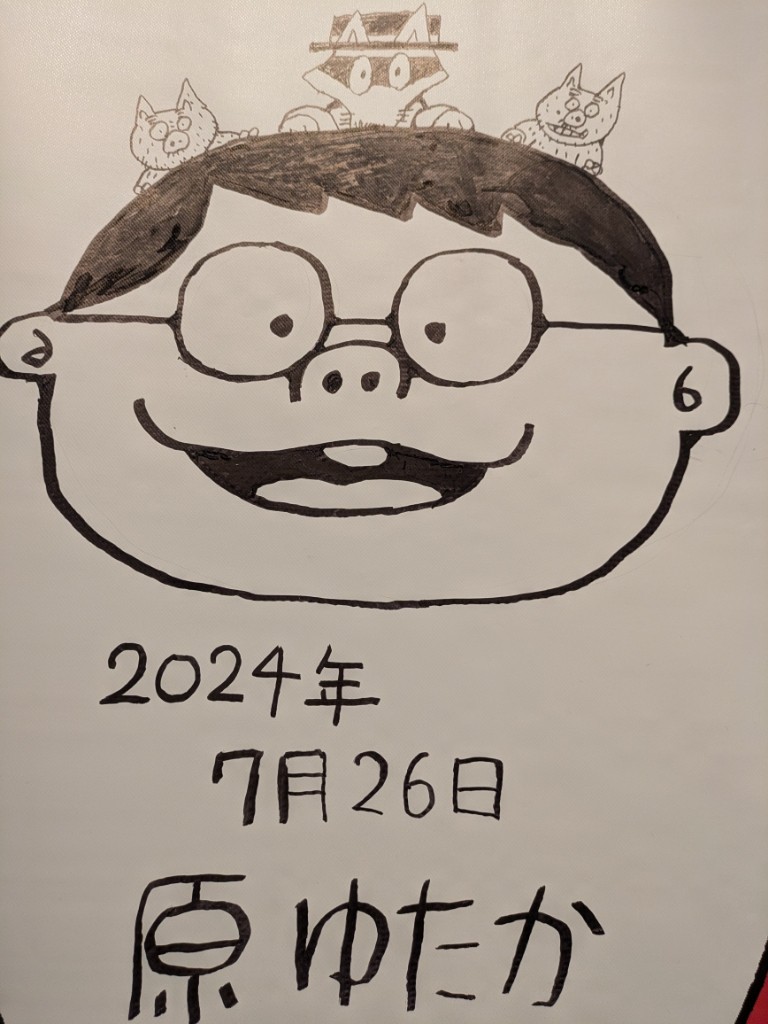 2024年
7月26日
原ゆたか